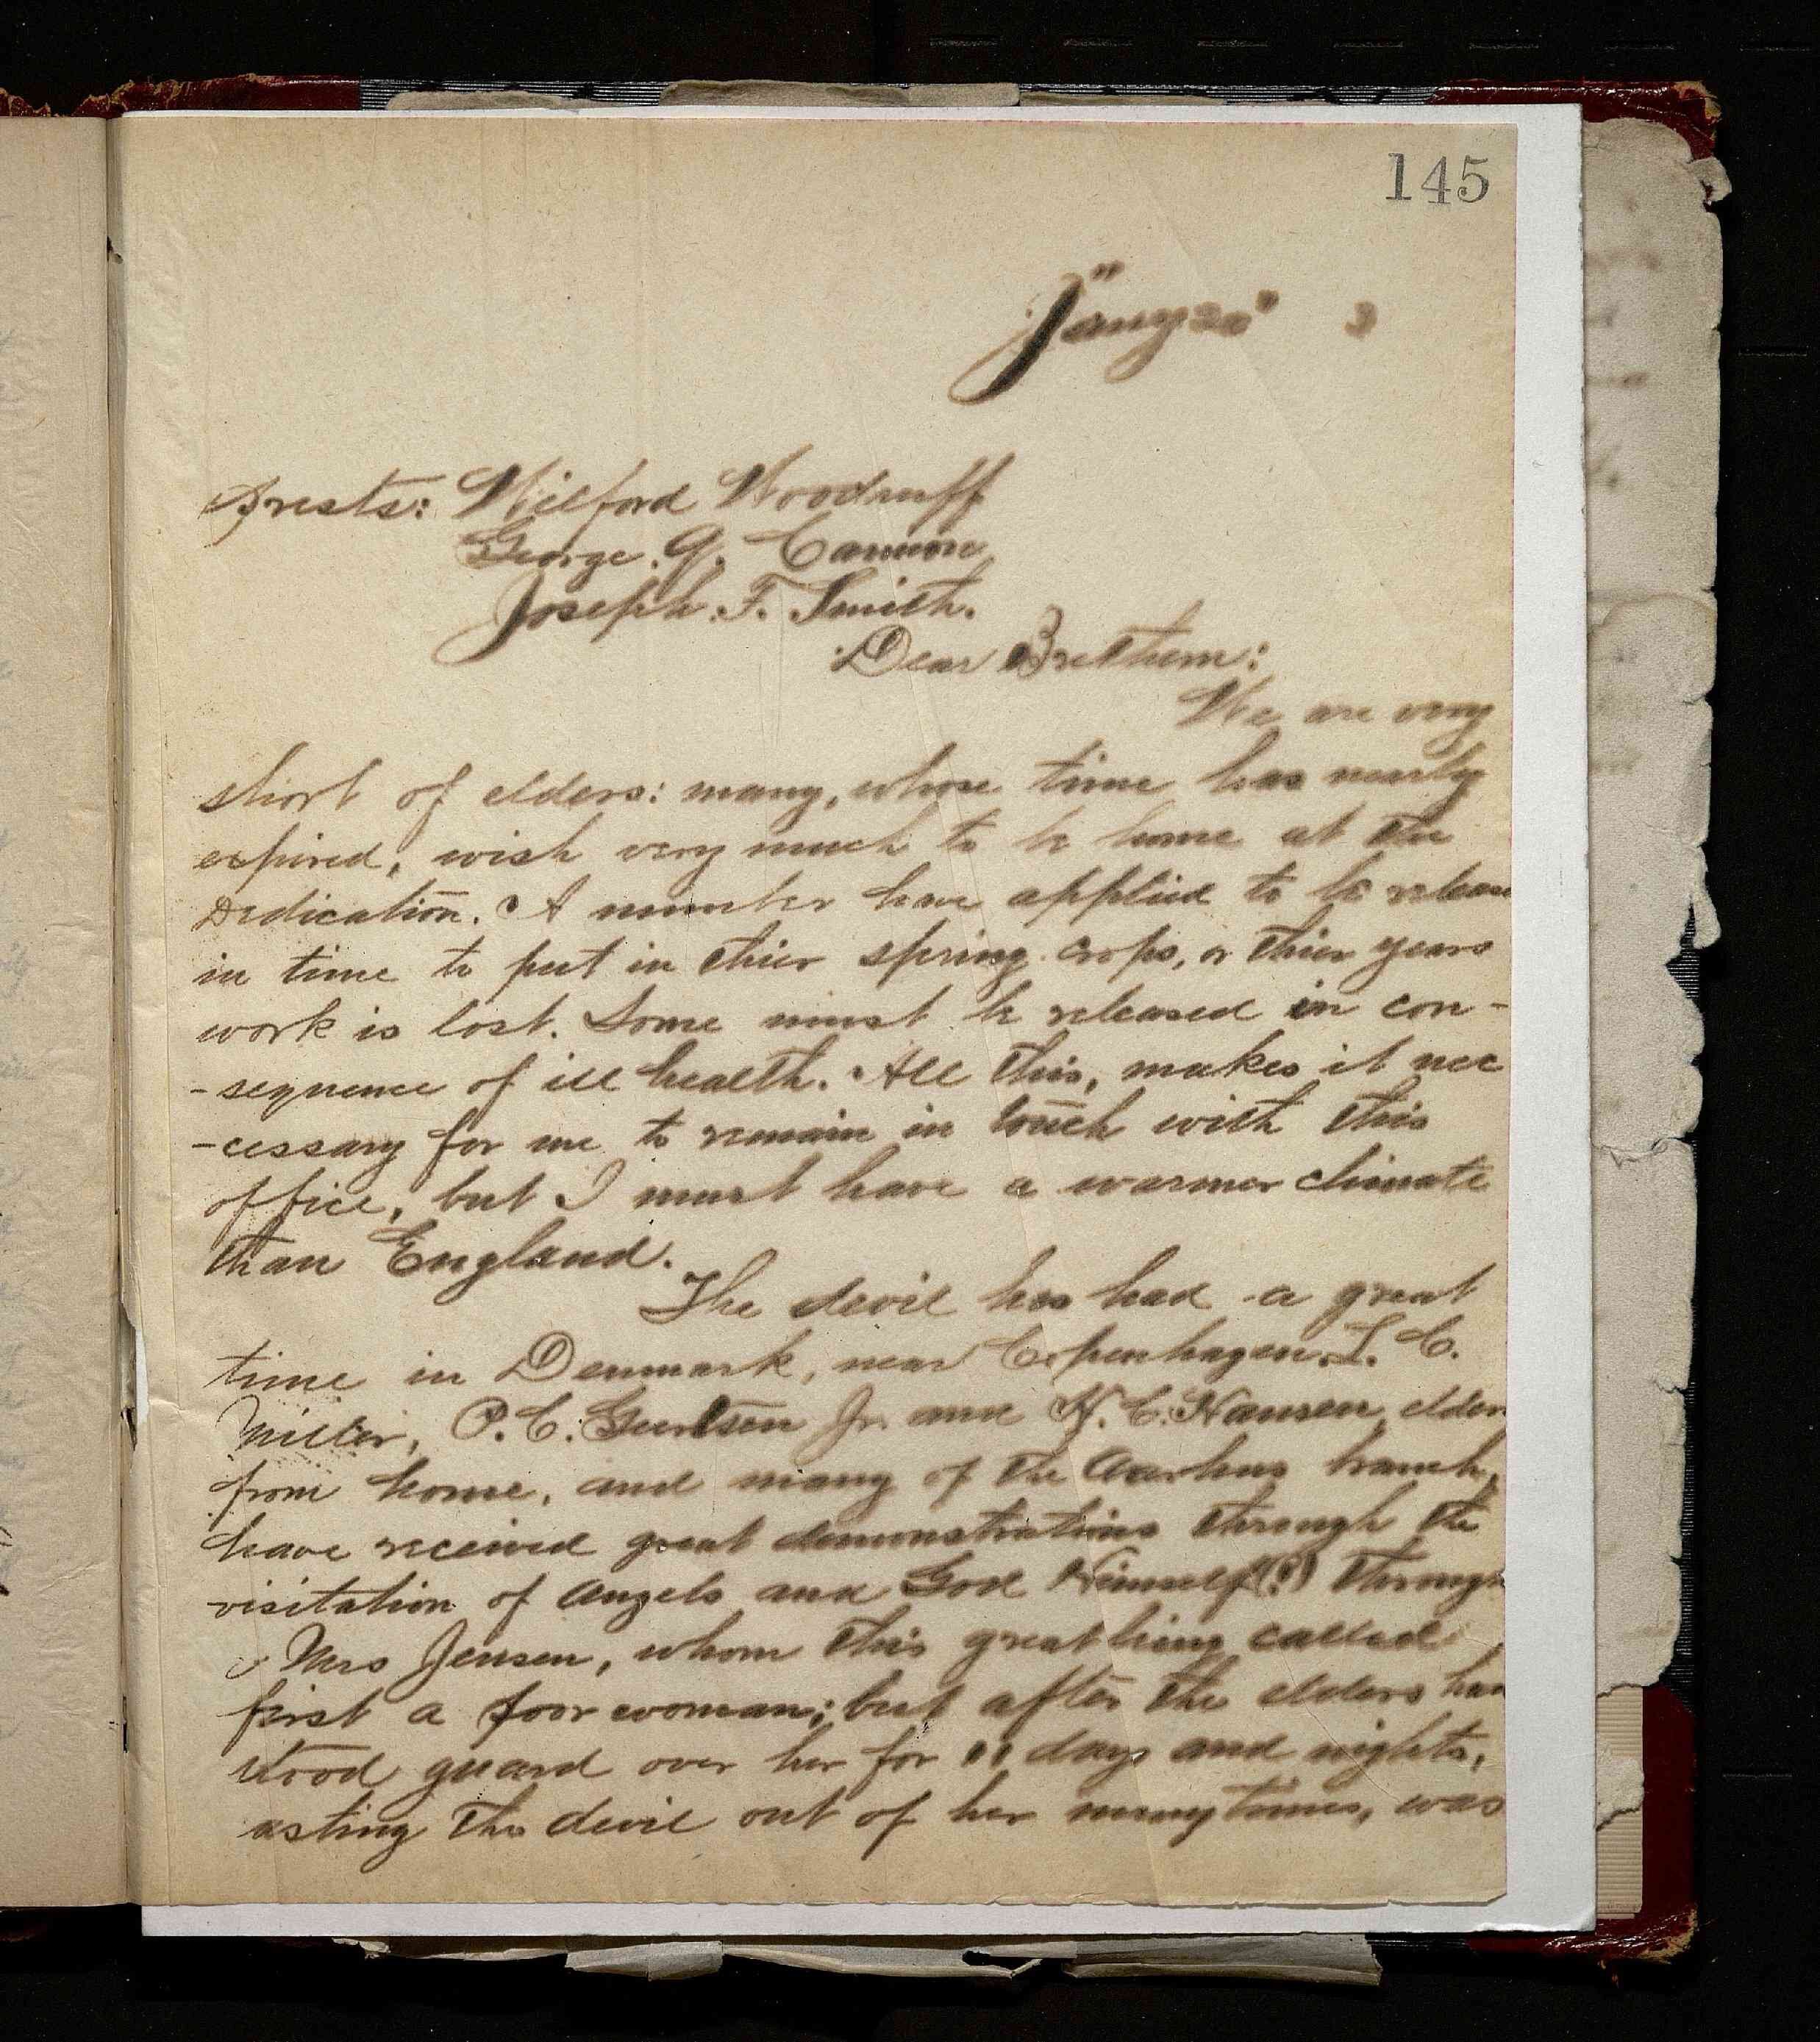 145
"Jany 20" 3
Prests: Wilford Woodruff
George. Q. Cannon
Joseph. F. Smith.
Dear Brethern:
We are very
short of elders: many, whose time has nearly
expired, wish very much to be home at the
Dedication. A number have applied to be releas
in time to put in thier spring crops, or thier years
work is lost. Some must be released in con-
-sequence of ill health. All this, makes it nec
-cessary for me to remain in touch with this
office, but I must have a warmer climate
than England.
The devil has had a great
time in Denmark, near Copenhagen. L. C.
Miller, P. C. Jr. and H. C. Hansen, elder
from home, and many of the Aarhus branch,
have received great demonstrations through the
visitation of angels and God Himself(?) through
Mrs Jensen, whom this great being called
first a poor woman; but after the elders had
stood guard over her for 11 days and nights,
asting the devil out of her many times, was